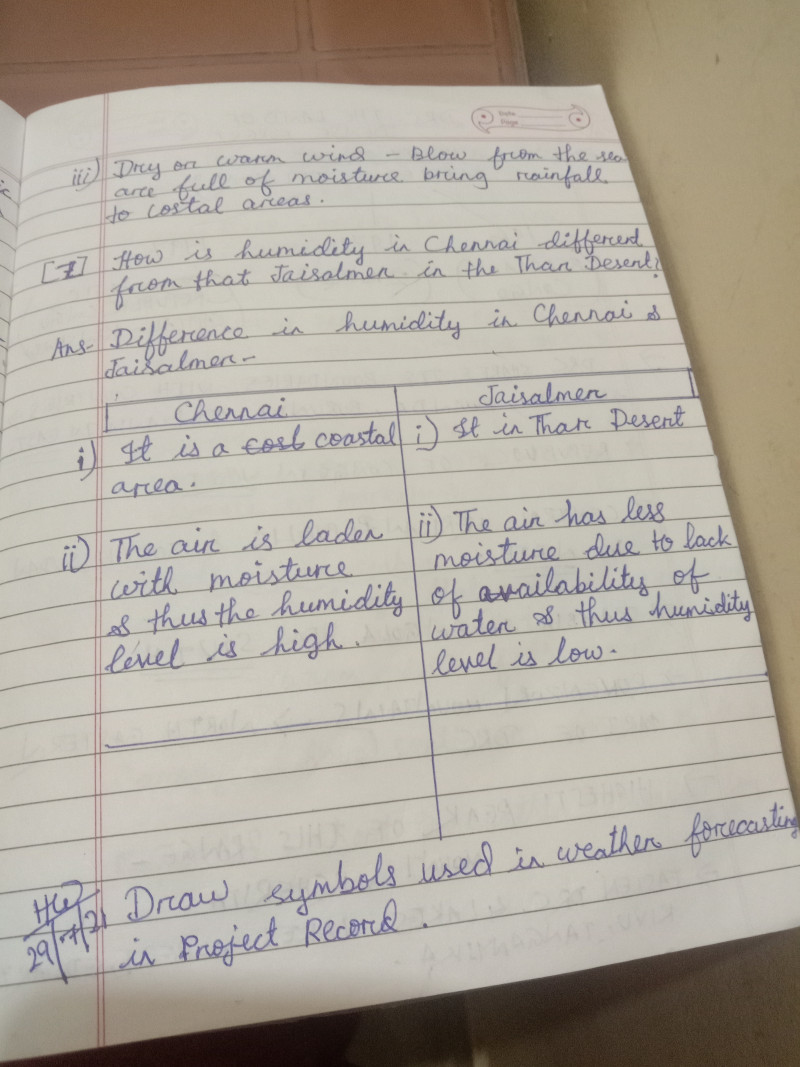 Date
Page
iii) Dry or warm wind - Blow from the sea
are full of moisture bring rainfall
to costal areas.
[7] How is humidity in Chennai different
from that Jaisalmer in the Thar Desert?
Ans- Difference in humidity in Chennai &
Jaisalmer-
Chennai
Jaisalmer
i) It is a cost coastal
area.
i) It in Thar Desert
ii) The air is laden
with moisture
& thus the humidity
level is high.
ii) The air has less
moisture due to lack
of availability of
water & thus humidity
level is low.
HW
29/7/21
Draw symbols used in weather forecasting
in Project Record.